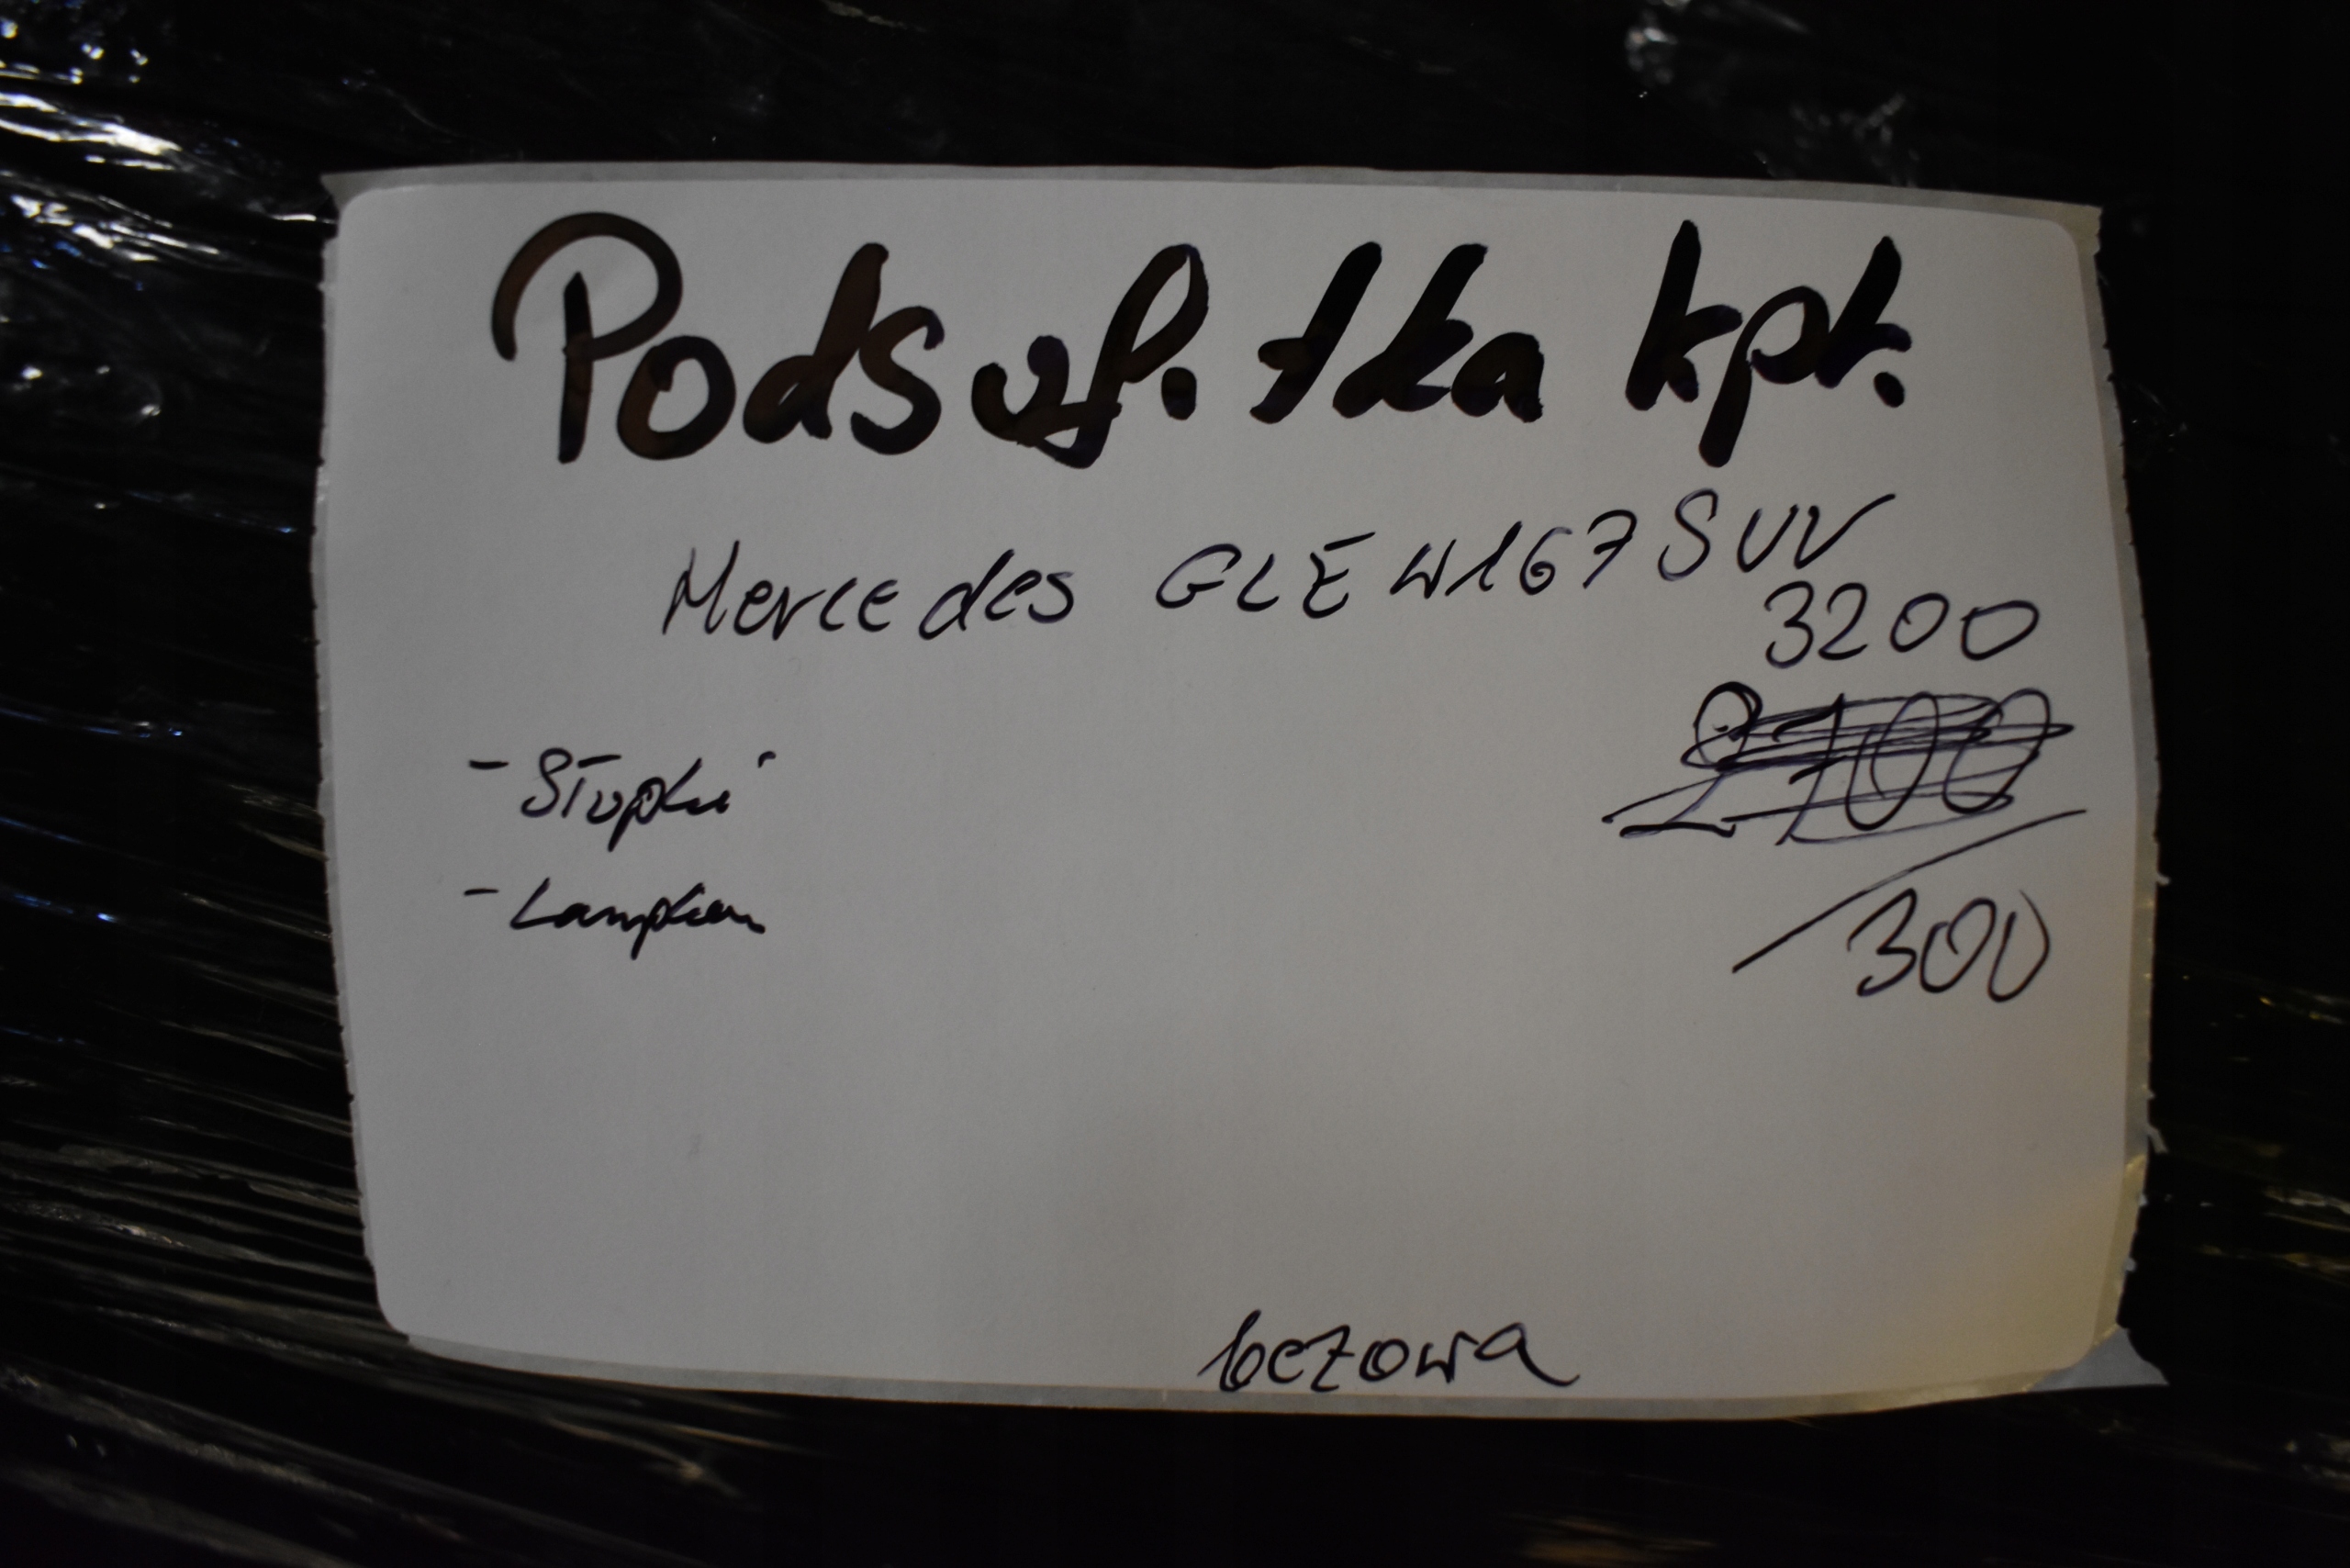 Podsufitka kpt.
Mercedes GLE W167 SUV
3200
- Słupki
- Lampka
300
beżowa